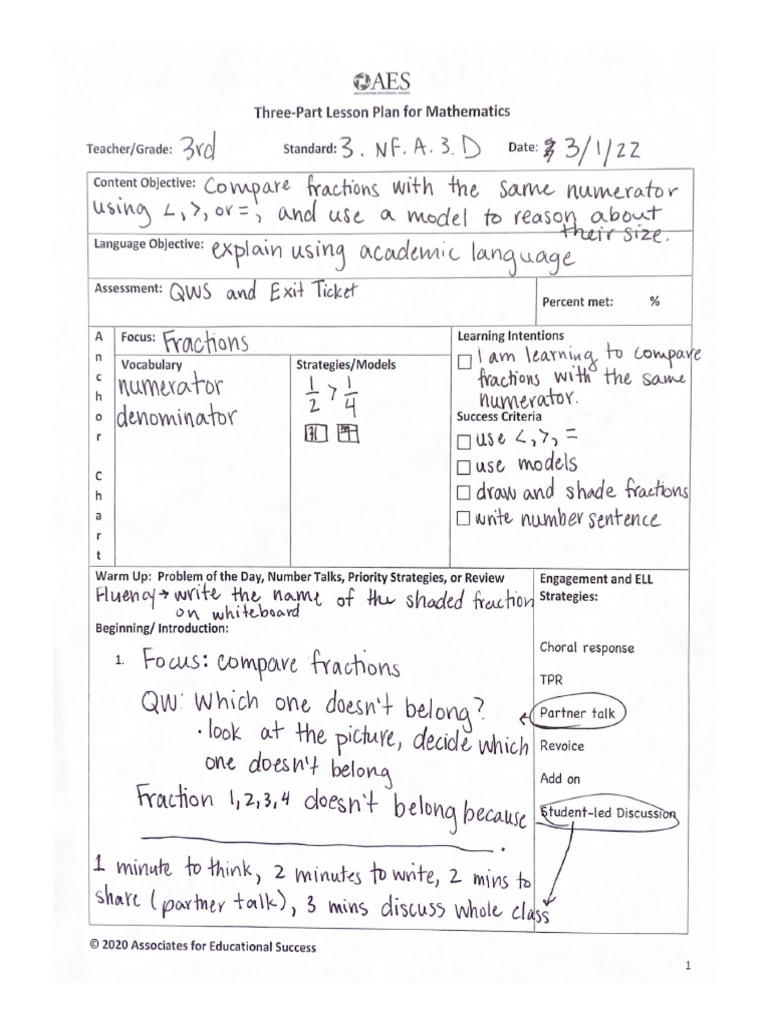 AES
Three-Part Lesson Plan for Mathematics
Teacher/Grade: 3rd Standard: 3. NF. A. 3. D Date: 3/1/22
Content Objective: Compare fractions with the same numerator
using <, >, or =, and use a model to reason about
their size.
Language Objective: explain using academic language
Assessment: QWS and Exit Ticket
Percent met: %
Anchor Chart
Focus: Fractions
Vocabulary
numerator
denominator
Strategies/Models
1/2 > 1/4
Learning Intentions
I am learning to compare
fractions with the same
numerator.
Success Criteria
use <, >, =
use models
draw and shade fractions
write number sentence
Warm Up: Problem of the Day, Number Talks, Priority Strategies, or Review
Fluency → write the name of the shaded fraction
on whiteboard
Beginning/ Introduction:
1. Focus: compare fractions
QW: Which one doesn't belong?
· look at the picture, decide which
one doesn't belong
Fraction 1, 2, 3, 4 doesn't belong because
____________________.
1 minute to think, 2 minutes to write, 2 mins to
share (partner talk), 3 mins discuss whole class
Engagement and ELL
Strategies:
Choral response
TPR
Partner talk
Revoice
Add on
Student-led Discussion
© 2020 Associates for Educational Success
1